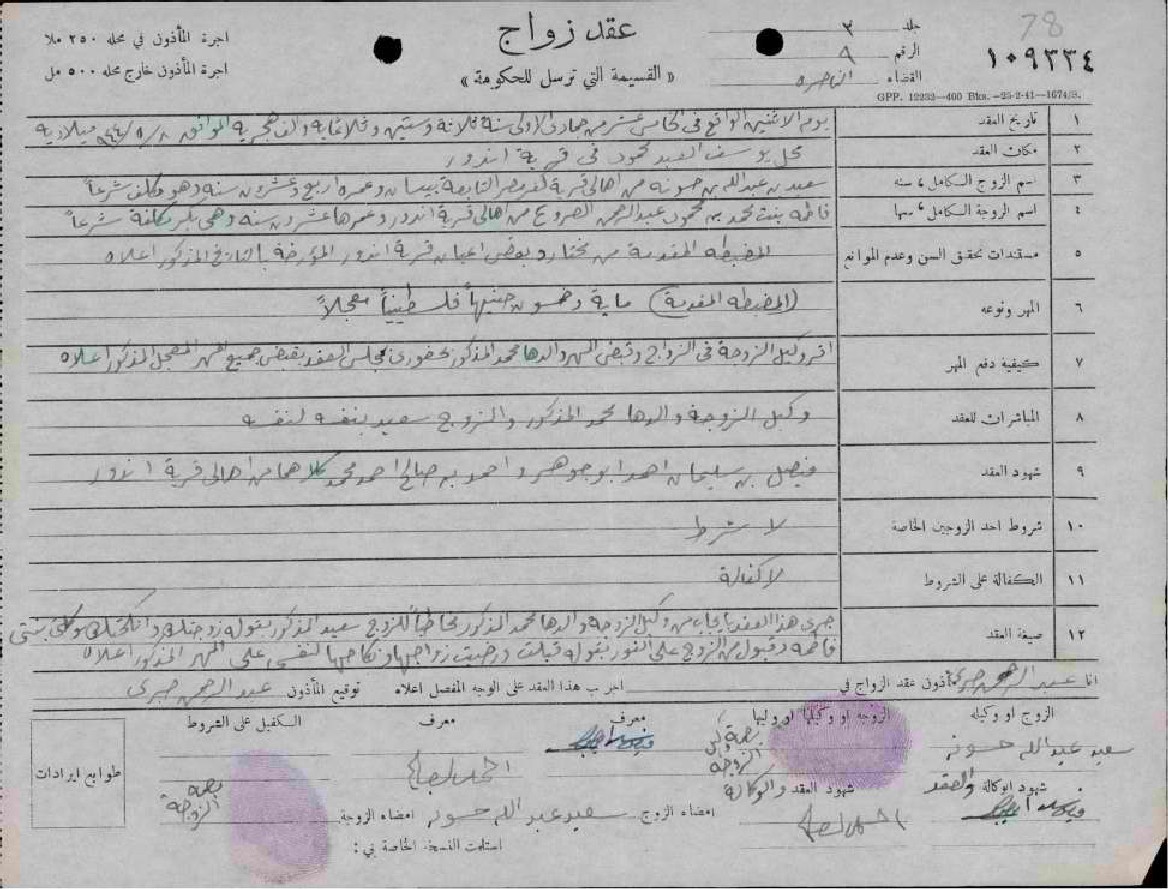 78
عقد زواج
جلد ٣
اجرة المأذون في محله ٢٥٠ ملا
الرقم ٨
١٠٩٢٢٤
اجرة المأذون خارج محله ٥٠٠ مل
« القسيمة التي ترسل للحكومة »
القضاء الناصره
GPP. 12232—400 Bks.—25-2-41—1674/S.
١ تاريخ العقد يوم الاثنين الواقع في الخامس عشر من جمادى الاولى سنة ثلاثة وستين وثلاثماية والف هجرية الموافق ميلادية
٢ مكان العقد محل يوسف العبد محمود في قرية اندور
٣ اسم الزوج الكامل، سنه سعيد بن عبدالله بن حسونه من اهالي قرية كفر مصر التابعة بيسان وعمره اربع وعشرون سنه وهو مكلف شرعاً
٤ اسم الزوجة الكامل، سنها فاطمه بنت محمد بن محمود عبدالرحمن من اهالي قرية اندور وعمرها عشرون سنه وهي بكر مكلفة شرعاً
٥ مستندات تحقق السن وعدم الموانع المضبطه المقدمة من مختار وبعض اعيان قرية اندور المؤرخة بالتاريخ المذكور اعلاه
٦ المهر ونوعه (المضبطه المقدمة) ماية وخمسون جنيهاً فلسطينياً معجلاً
٧ كيفية دفع المهر اقر وكيل الزوجة في الزواج وقبض المهر والدها محمد المذكور بحضوري بمجلس العقد بقبض جميع المهر المعجل المذكور اعلاه
٨ المباشران للعقد وكيل الزوجة والدها محمد المذكور والزوج سعيد بنفسه لنفسه
٩ شهود العقد فيصل بن سليمان احمد ابو جوهر و احمد بن صالح احمد محمد كلاهما من اهالي قرية اندور
١٠ شروط احد الزوجين الخاصة لا شرط
١١ الكفالة على الشروط لا كفالة
١٢ صيغة العقد جرى هذا العقد بايجاب من وكيل الزوجة والدها محمد المذكور مخاطباً للزوج سعيد المذكور بقوله زوجتك وانكحتك موكلتي بنتي
فاطمه وقبول من الزوج على الفور بقوله قبلت ورضيت زواجها ونكاحها لنفسي على المهر المذكور اعلاه
انا عبد الرحمن صبري مأذون عقد الزواج في اجرب هذا العقد على الوجه المفصل اعلاه توقيع المأذون عبد الرحمن صبري
الزوج او وكيله الزوجة او وكيلها او وليها معرف معرف الكفيل على الشروط
سعيد عبدالله حسونه
بصمة
الزوجة
احمد الصالح
طوابع ايرادات
شهود الوكالة والعقد
شهود العقد والوكالة
بصمة
الزوجة
احمد الصالح
امضاء الزوج سعيد عبدالله حسونه امضاء الزوجة
استلمت النسخة الخاصة بي: